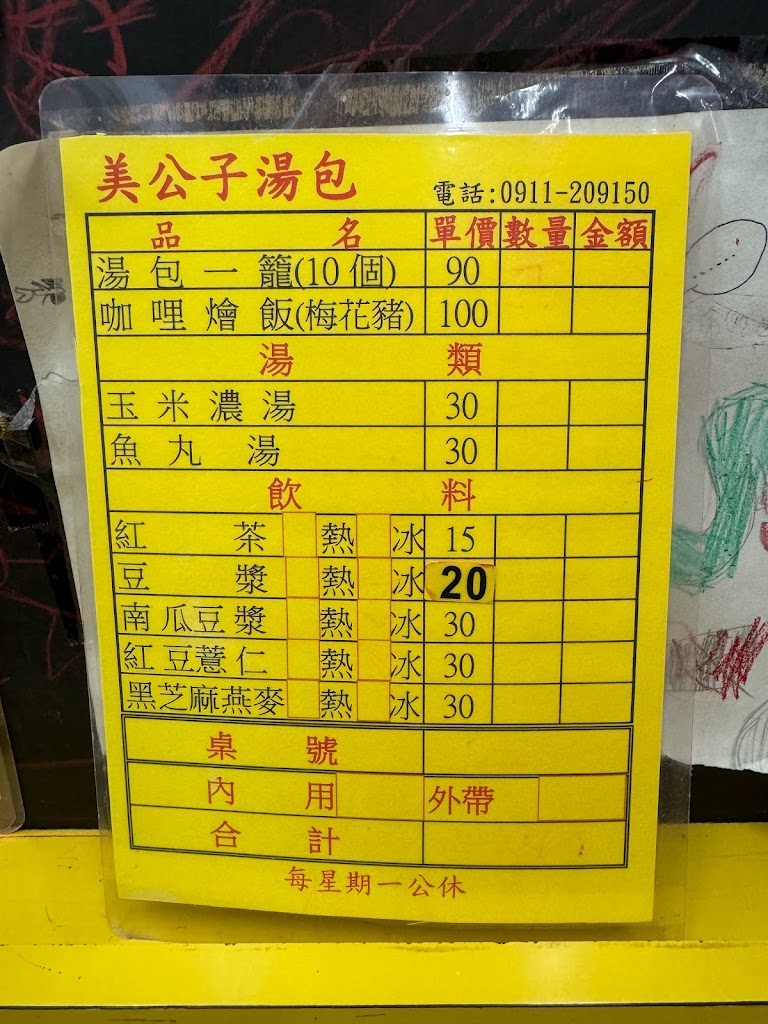 美公子湯包 電話:0911-209150
品名 單價 數量 金額
湯包一籠(10個) 90
咖哩燴飯(梅花豬) 100
湯類
玉米濃湯 30
魚丸湯 30
飲料
紅茶 熱 冰 15
豆漿 熱 冰 20
南瓜豆漿 熱 冰 30
紅豆薏仁 熱 冰 30
黑芝麻燕麥 熱 冰 30
桌號
內用 外帶
合計
每星期一公休